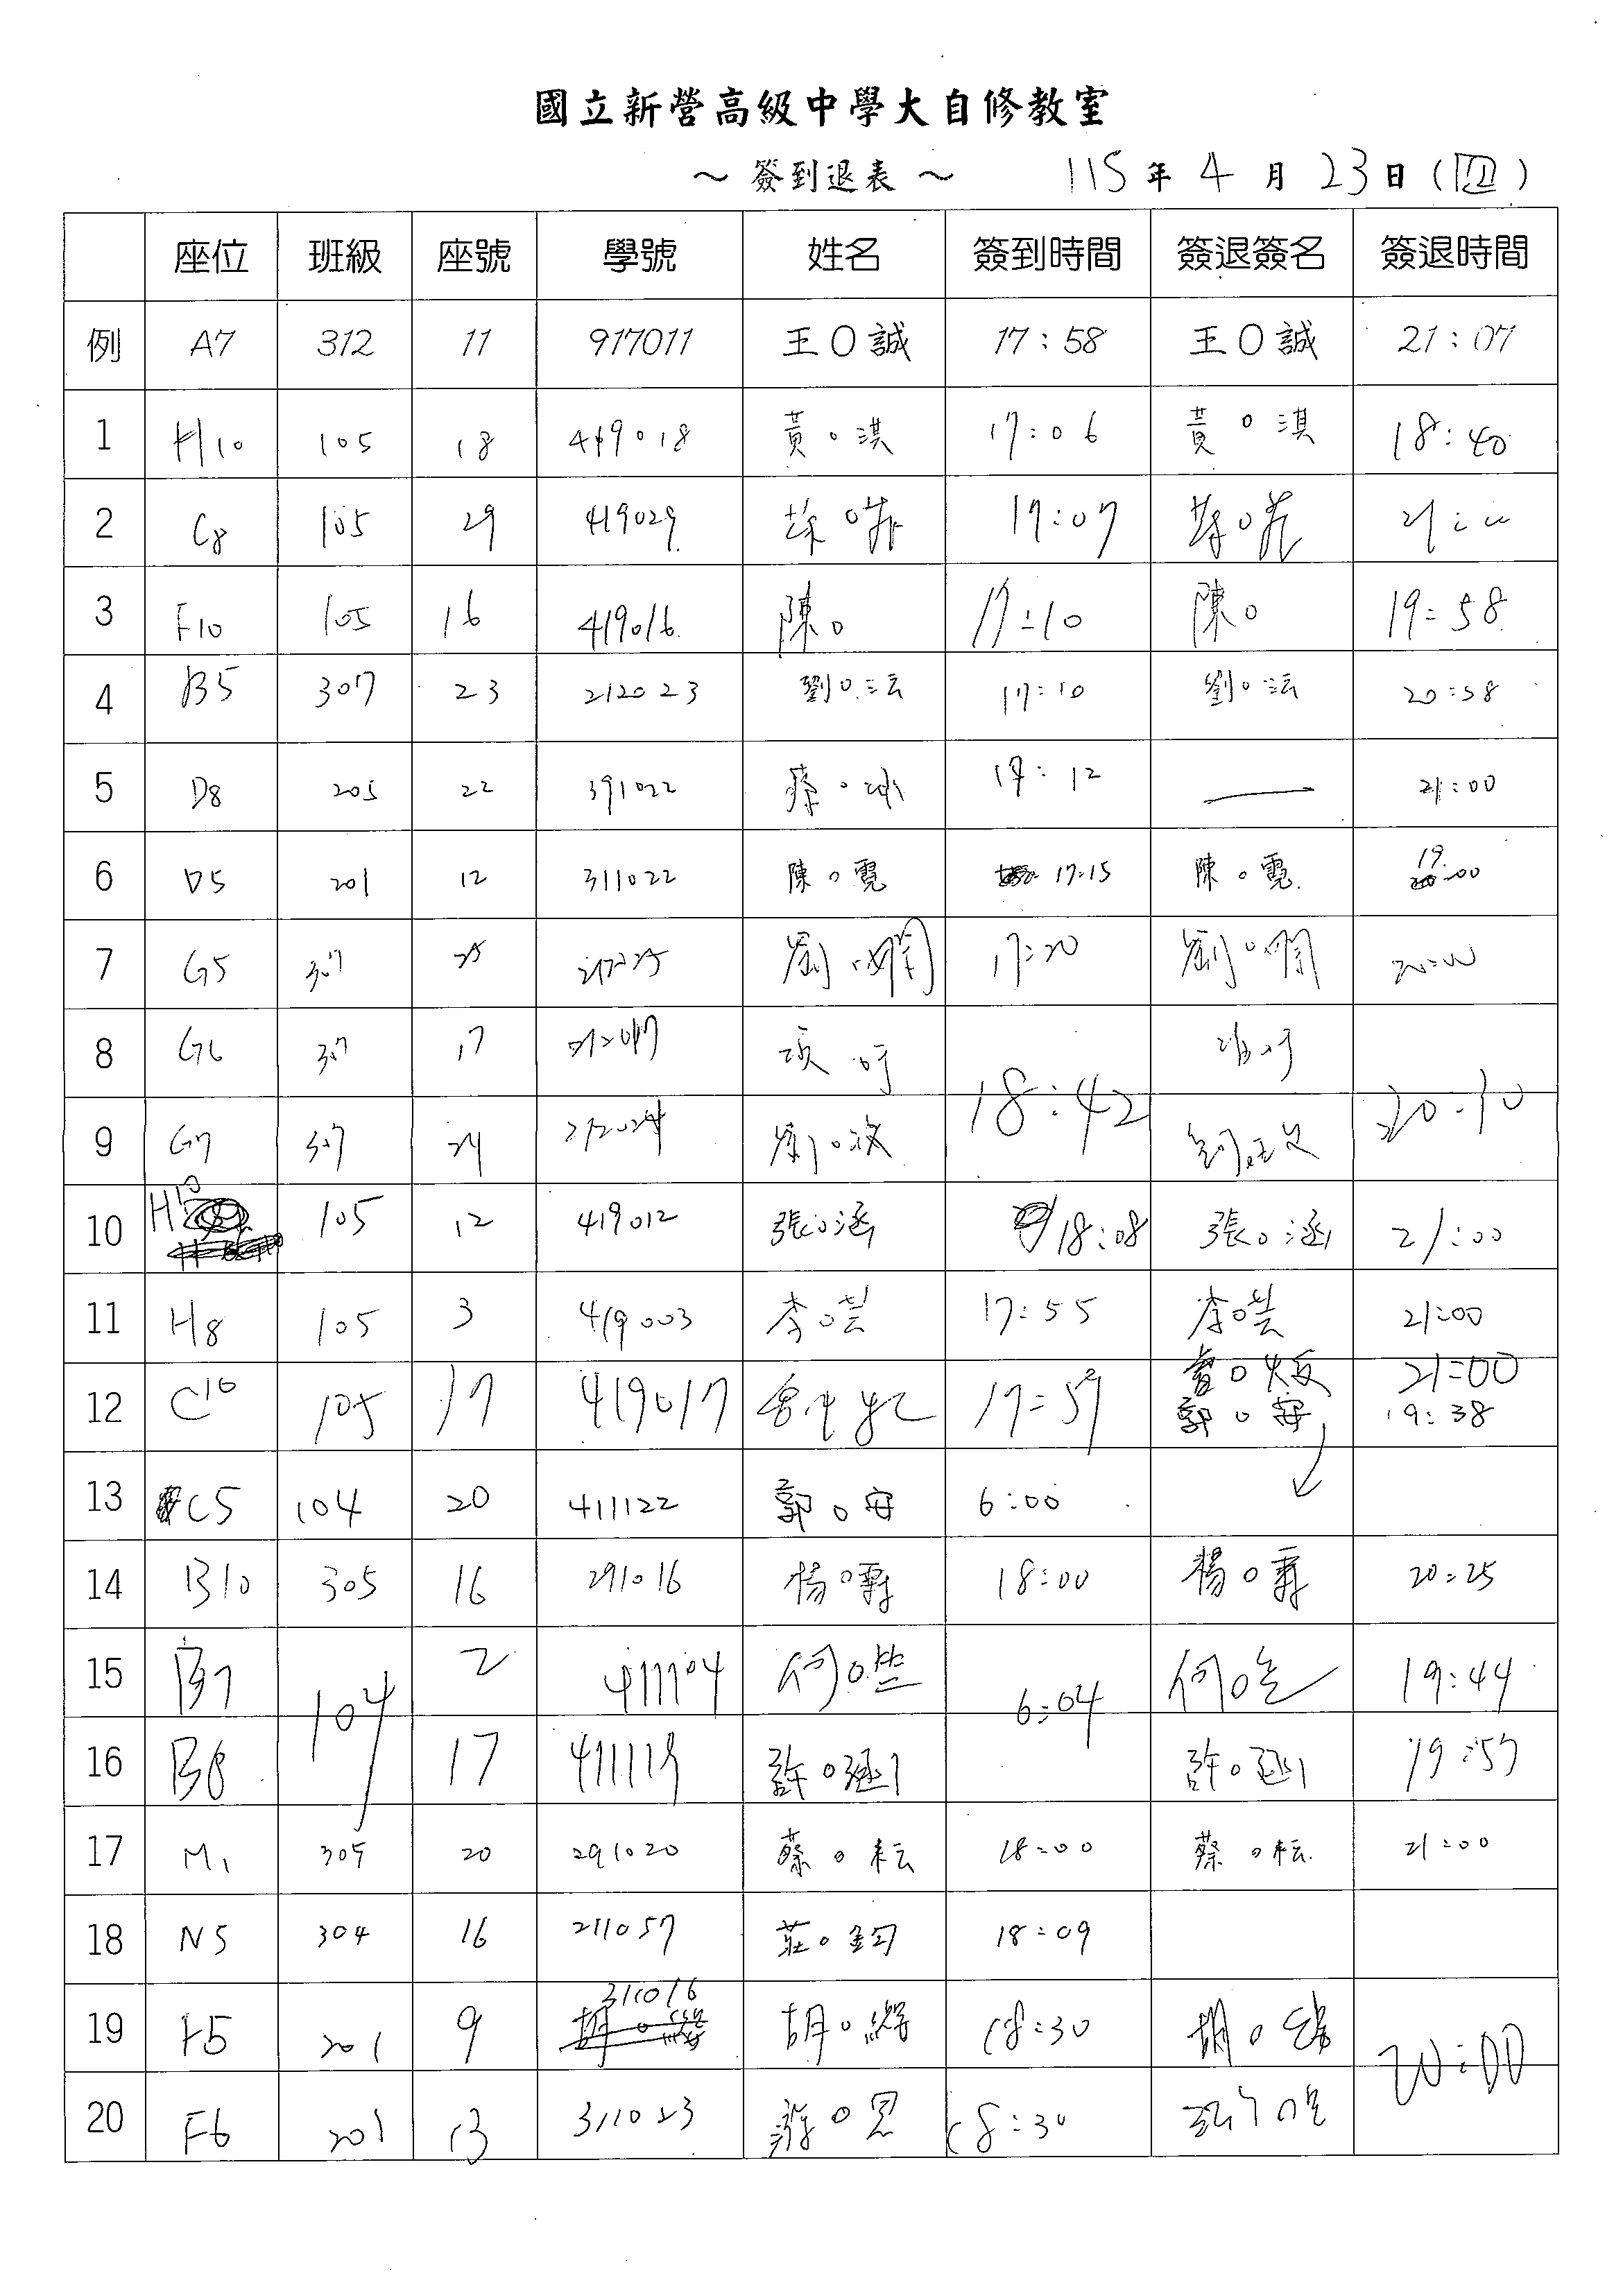 國立新營高級中學大自修教室
～ 簽到退表 ～ 115 年 4 月 23 日 (四)
座位 班級 座號 學號 姓名 簽到時間 簽退簽名 簽退時間
例 A7 312 11 917011 王O誠 17:58 王O誠 21:07
1 H10 105 18 419018 黃O淇 17:06 黃O淇 18:40
2 C8 105 29 419029 17:07
3 F10 105 16 419016 陳O 17:10 陳O 19:58
4 B5 307 23 212023 劉O沄 17:10 劉O沄 20:58
5 D8 205 22 391022 蔡O 17:12 — 21:00
6 D5 201 12 311022 陳O霓 17:15 陳O霓 19:00
7 G5 307 25 劉O 17:20 劉O 20:00
8 G6 307 17 212017 項O 18:42 20:10
9 G7 307 24 212024 劉O
10 H10 105 12 419012 張O涵 18:08 張O涵 21:00
11 H8 105 3 419003 李O芸 17:55 李O芸 21:00
12 C10 105 17 419017 17:59 21:00
郭O安 19:38
13 C5 104 20 411122 郭O安 6:00
14 B10 305 16 291016 楊O霨 18:00 楊O 20:25
15 B7 104 2 411104 何O 6:04 何O 19:44
16 B8 17 411119 許O涵 許O涵 19:57
17 M1 305 20 291020 蔡O耘 18:00 蔡O耘 21:00
18 N5 304 16 211057 莊O鈞 18:09
19 F5 201 9 311016 胡O 18:30 胡O 20:00
20 F6 201 13 311023 游O恩 18:30